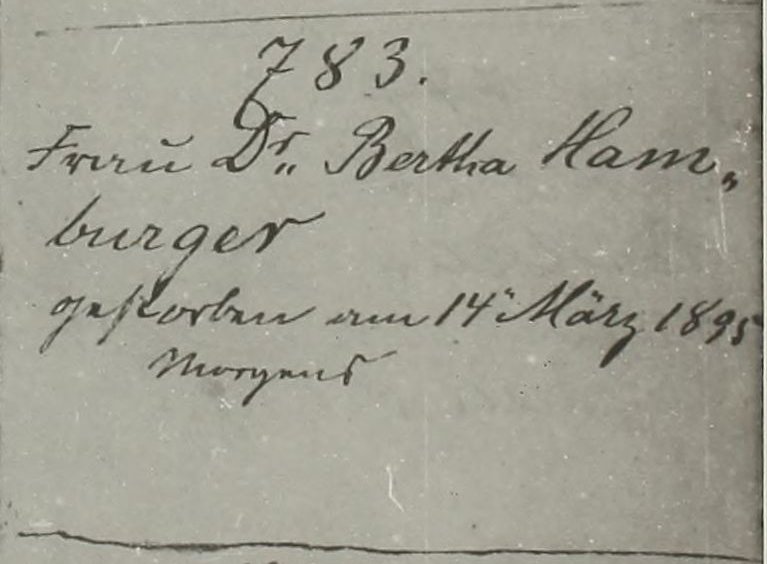 783.
Frau Dr. Bertha Ham„
burger
gestorben am 14" März 1895
Morgens